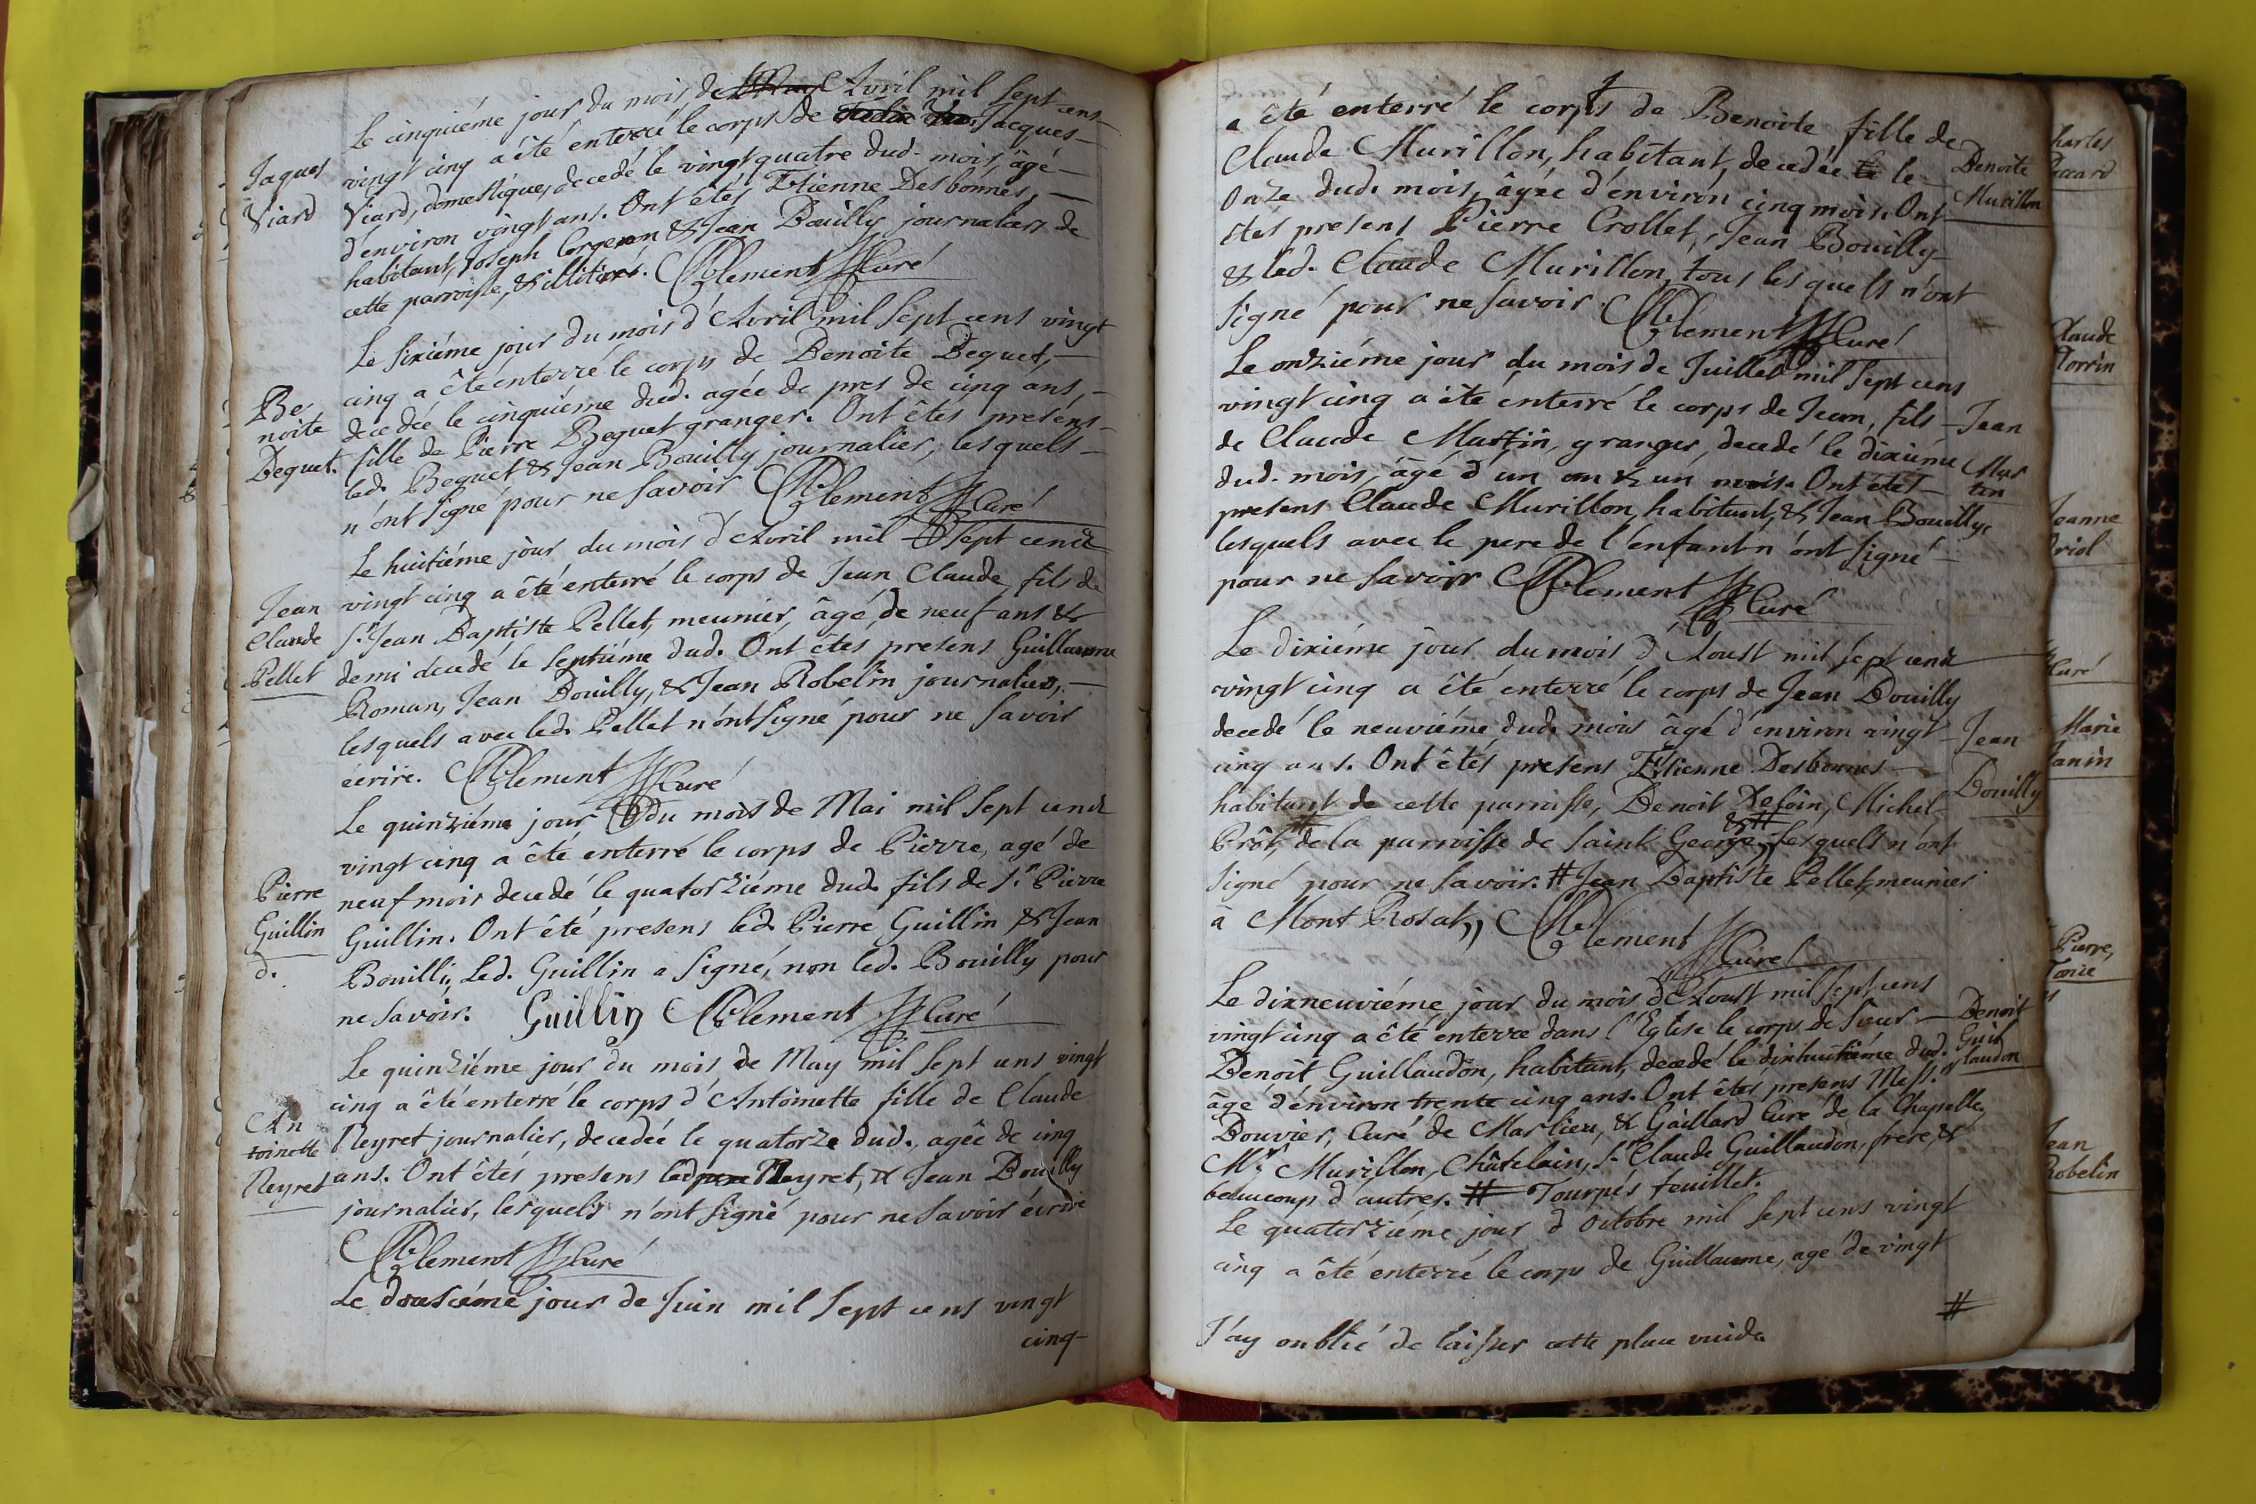 Le cinquiéme jour du mois de Avril mil sept cens
vingt cinq a êté enterré le corps de Jacques
Jaques
Viard, domestique, decedé le vingt quatre dud. mois, âgé
Viard
d'environ vingt ans. Ont êtés Etienne Desbonnes,
habitant, Joseph & Jean Bouilly journaliers de
cette parroisse, & illitirés. Clement Curé
Le sixiéme jour du mois d'Avril mil sept cens vingt
cinq a êté enterré le corps de Benoite Beguet,
Be
noite
Beguet.
decedée le cinquieme dud. agée de pres de cinq ans,
fille de Pierre Beguet granger. Ont êtés presens
led. Beguet & Jean Bouilly journalier, lesquels
n'ont signé pour ne savoir Clement Curé
Le huitiéme jour du mois d'Avril mil sept cens
vingt cinq a êté enterré le corps de Jean Claude, fils de
Jean
Claude
Pellet
Sr. Jean Baptiste Pellet, meunier, âgé de neuf ans &
demi décedé le septiéme dud. Ont êtés presens Guillaume
Roman, Jean Bouilly, & Jean Robelin journaliers,
lesquels avec led. Pellet n'ont signé pour ne savoir
écrire. Clement Curé
Le quinziéme jour du mois de Mai mil sept cens
vingt cinq a êté enterré le corps de Pierre, agé de
Pierre
Guillin
d.
neuf mois decedé le quatorziéme dud. fils de Sr. Pierre
Guillin. Ont êté presens led. Pierre Guillin & Jean
Bouilli, Led. Guillin a signé, non led. Bouilly pour
ne savoir. Guillin Clement Curé
Le quinziéme jour du mois de May mil sept cens vingt
cinq a êté enterré le corps d'Antoinette fille de Claude
An
toinette
Neyret
Neyret journalier, decedée le quatorze dud., agée de cinq
ans. Ont êtés presens led Neyret, & Jean Bouilly
journalier, lesquels n'ont signé pour ne savoir écrire
Clement Curé
Le douxiéme jour de Juin mil sept cens vingt
cinq
a êté enterré le corps de Benoite fille de
Claude Murillon, habitant, decedée le
Benoite
Murillon
Onze dud. mois, âgée d'environ cinq mois. Ont
êtés presens Pierre Crollet, Jean Bouilly
& led. Claude Murillon, tous lesquels n'ont
signé pour ne savoir. Clement Curé
Le onziéme jour du mois de Juillet mil sept cens
vingt cinq a êté enterré le corps de Jean, fils
Jean
Mar
tin
de Claude Martin, granger, decedé le dixiéme
dud. mois, âgé d'un an & un mois. Ont êtés
presens Claude Murillon, habitant, & Jean Bouilly,
lesquels avec le pere de l'enfant n'ont signé
pour ne savoir Clement Curé
Le dixiéme jour du mois d'Aoust mil sept cens
vingt cinq a êté enterré le corps de Jean Bouilly
Jean
Bouilly
decedé le neuviéme dud. mois âgé d'environ vingt
cinq ans. Ont êtés presens Etienne Desbonnes
habitant de cette parroisse, Benoit Defoin, Michel
Prôt, de la parroisse de saint George, &# lesquels n'ont
signé pour ne savoir. # Jean Baptiste Pellet, meunier
à Mont Rosat,, Clement Curé
Le dixneuviéme jour du mois d'Aoust mil sept cens
vingt cinq a êté enterré dans l'Eglise le corps de sieur
Benoit
Guil
laudon
Benoit Guillaudon, habitant, decedé le dixhuitiéme dud.
âgé d'environ trente cinq ans. Ont êtés presens Mess.rs
Bouvier, Curé de Marlieu, & Gaillard Curé de la Chapelle,
Mr. Murillon, Châtelain, Sr. Claude Guillaudon, frere, &
beaucoup d'autres. # Tournés feuillet.
Le quatorziéme jour d'Octobre mil sept cens vingt
cinq a êté enterré le corps de Guillaume, agé de vingt
#
J'ay oublié de laisser cette place vuide
harles
laude
Morrin
Jeanne
riol
Curé
Marie
Janin
Pierre,
Jean
Robelin